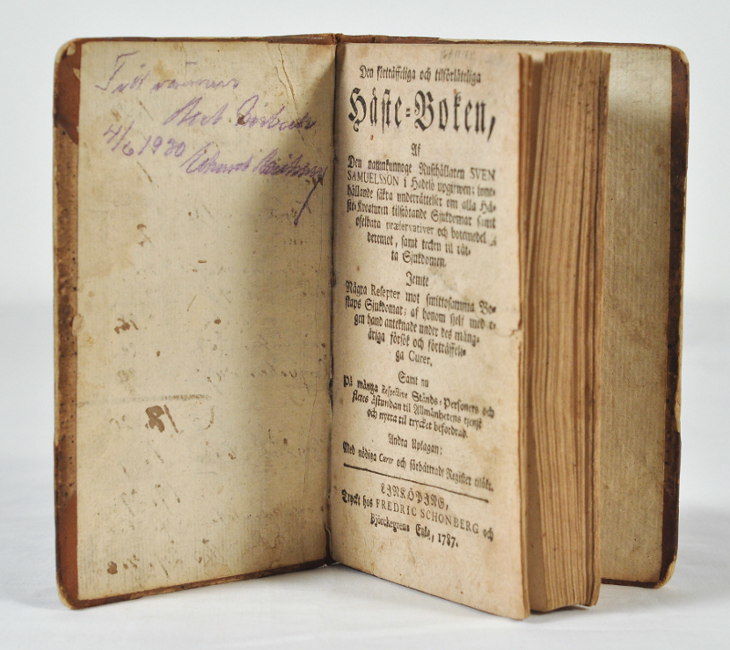 Till vännen
4/6 1930
18
Den förträffeliga och tilförlåteliga
Häste-Boken,
Af
Den namnkunnoge Rusthållaren SVEN
SAMUELSSON i Hadelö upgifwen; inne-
hållande säkra underrättelser om alla Hä-
ste-Kreaturen tilstötande Sjukdomar samt
ofelbara præservativer och botemedel
deremot, samt tecken til rät-
ta Sjukdomen.
Jemte
Några Recepter mot smittosamma Bo-
skaps Sjukdomar; af honom sjelf med e-
gen hand antecknade under des mång-
åriga försök och förträffeli-
ga Curer.
Samt nu
På många Respective Stånds-Personers och
fleres åstundan til Allmänhetens tjenst
och nytta til trycket befordrad.
Andra Uplagan:
Med nödiga Curer och förbättradt Register tilökt.
LINKÖPING,
Tryckt hos FREDRIC SCHONBERG och
Björckegrens Enka, 1787.